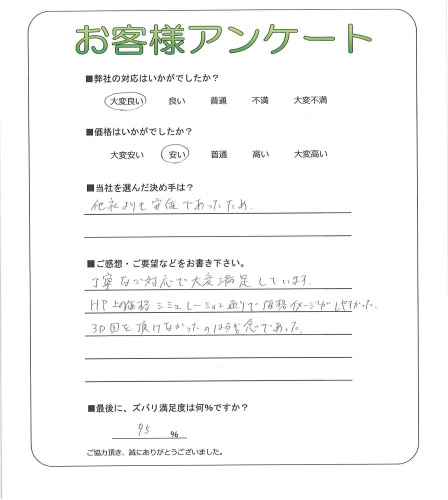 お客様アンケート
■弊社の対応はいかがでしたか?
大変良い 良い 普通 不満 大変不満
■価格はいかがでしたか?
大変安い 安い 普通 高い 大変高い
■当社を選んだ決め手は?
他社よりも安価であったため.
■ご感想・ご要望などをお書き下さい。
丁寧なご対応で大変満足しています.
HP上の価格シミュレーション通りで価格イメージがしやすかった.
3D図を頂けなかったのは残念であった.
■最後に、ズバリ満足度は何%ですか?
95 %
ご協力頂き、誠にありがとうございました。